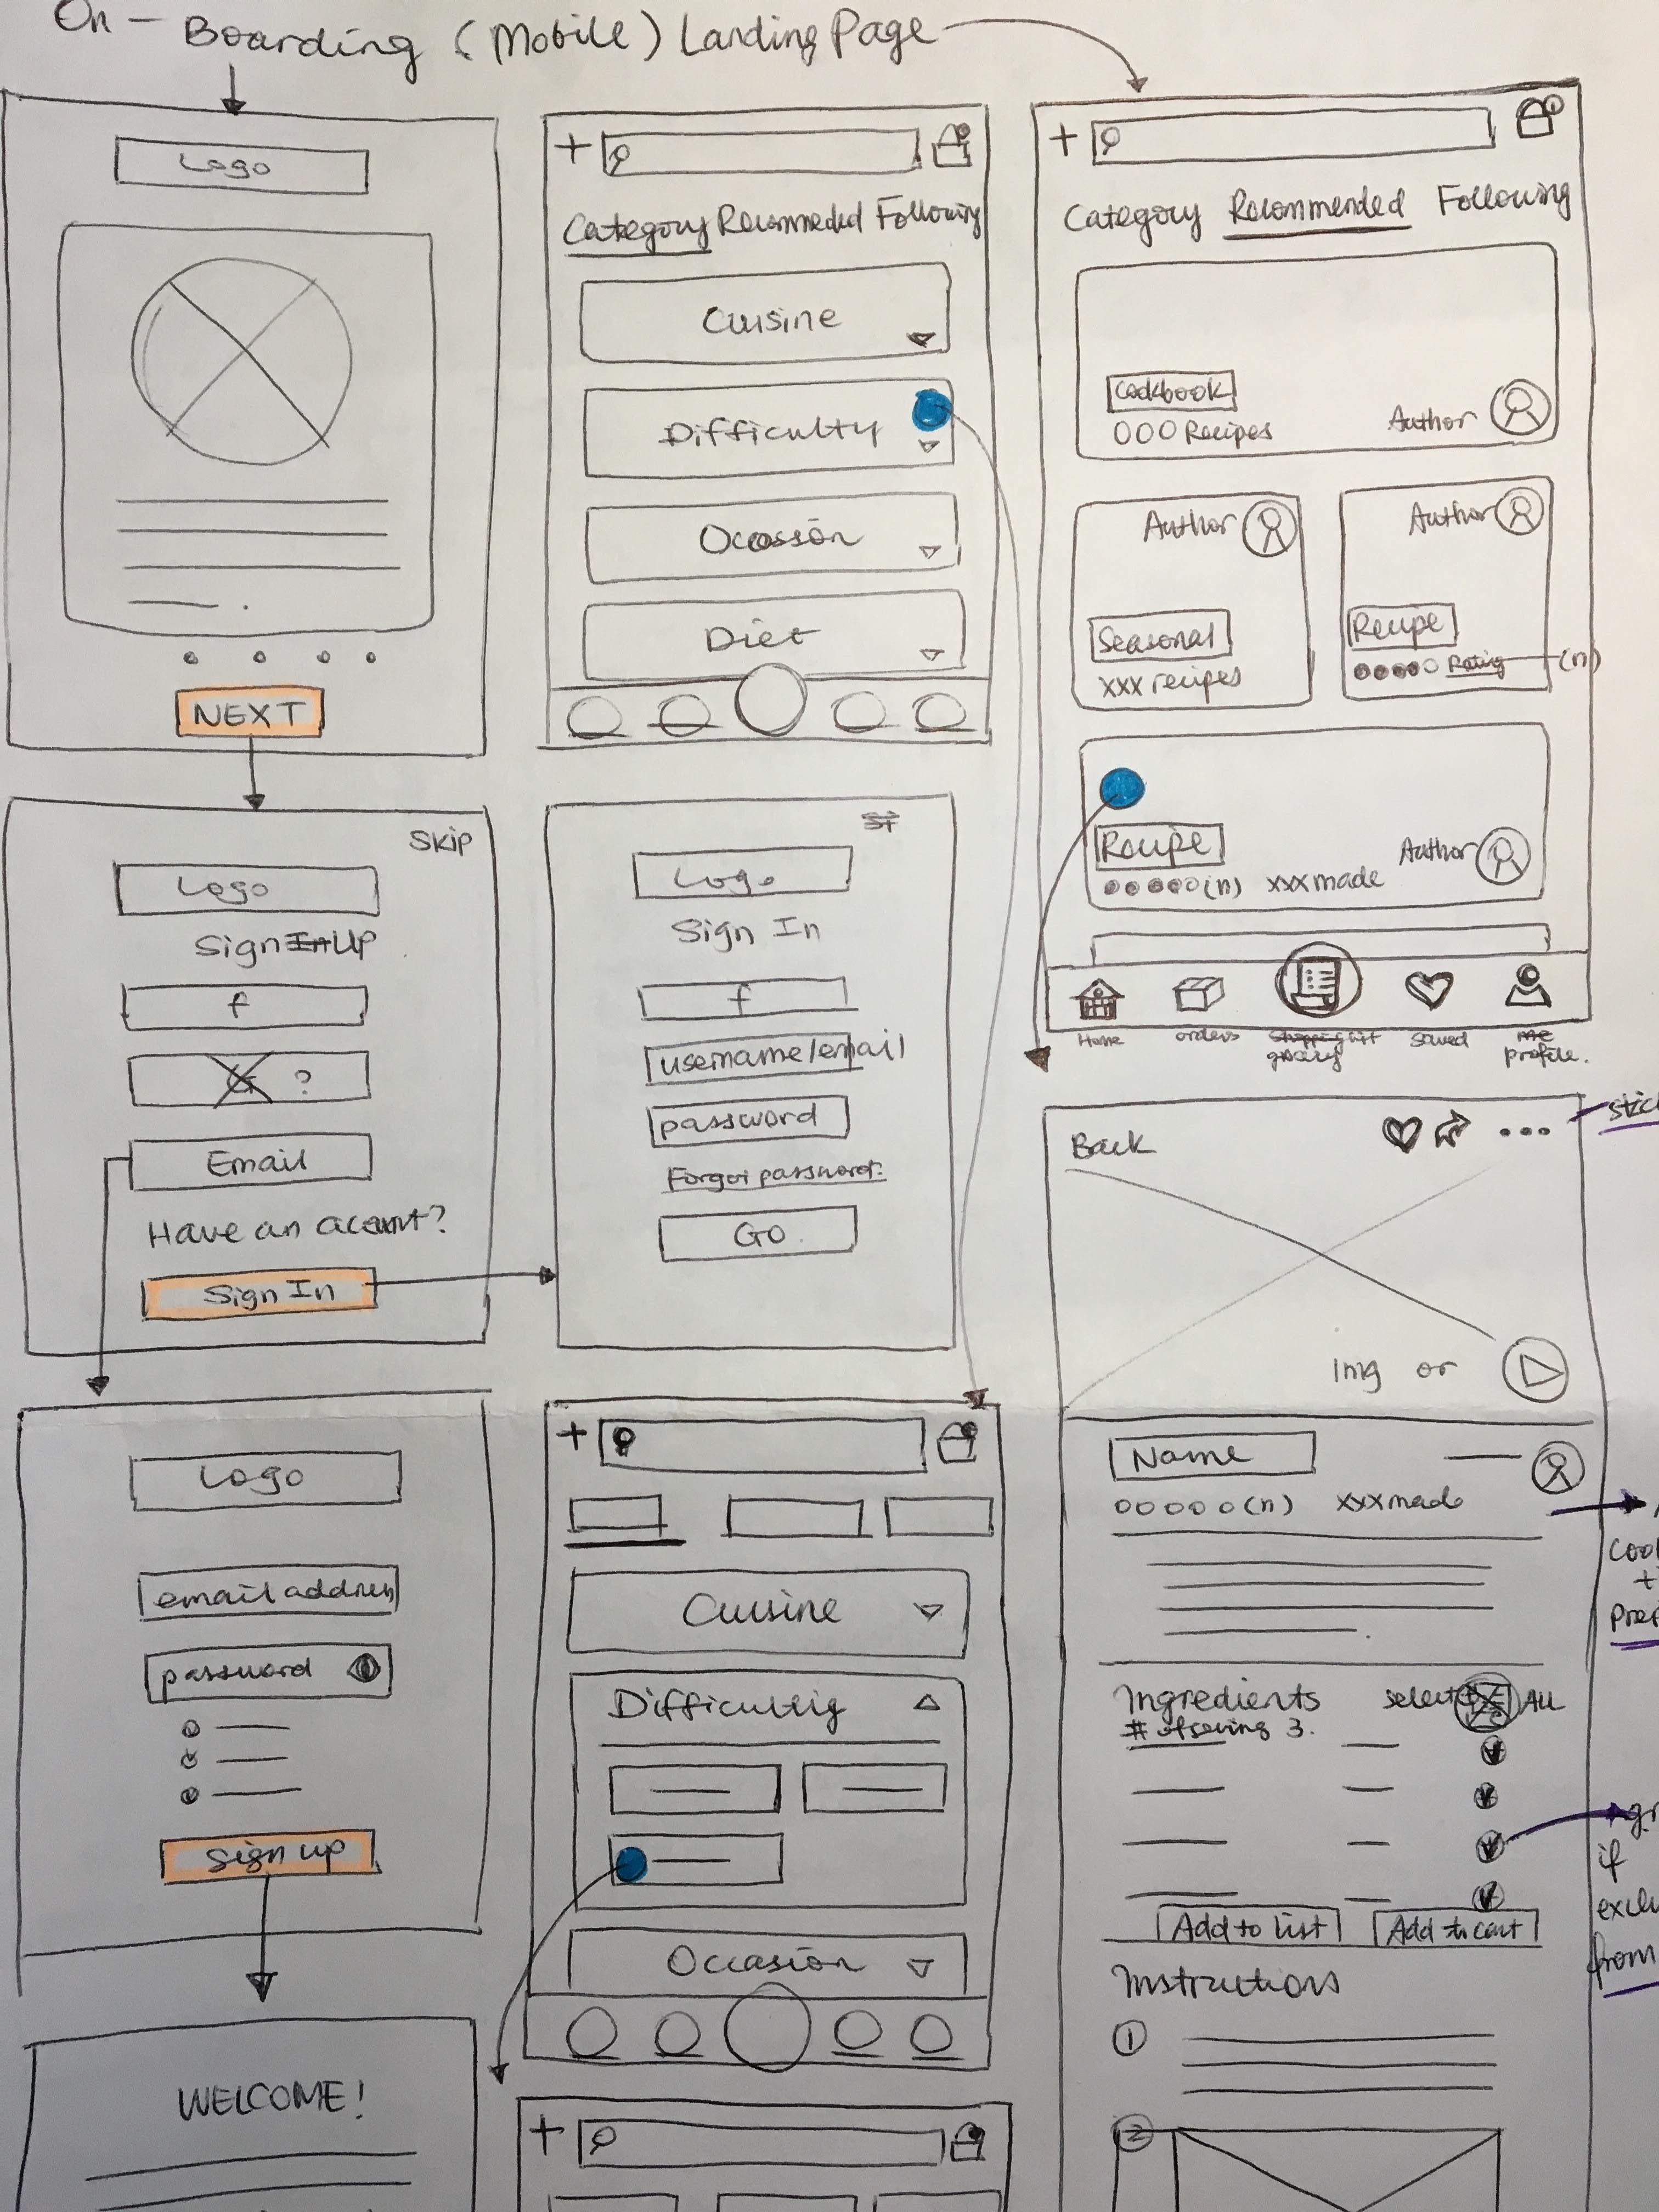 On - Boarding (Mobile) Landing Page
Logo
NEXT
Skip
Logo
Sign In Up
f
G ?
Email
Have an account?
Sign In
Logo
email address
password
Sign up
WELCOME!
Category Recommeded Following
Cuisine
Difficulty
Diet
Logo
Sign In
f
username/email
password
Forgot password?
Go
Cuisine
Difficulty
Occasion
Category Recommended Following
Cookbook
000 Recipes
Author
Author
Seasonal
xxx recipes
Author
Recipe
Rating (n)
Recipe
(n) xxx made
Author
Home
orders
Shopping list
grocery
Saved
me
profile.
Back
Img or
Name
(n) xxx made
Ingredients
select
ALL
# of serving 3.
Add to list
Add to cart
Instructions
1
2
if
from